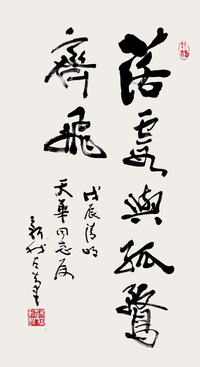 落霞與孤鶩
齊飛
戊辰清明
天華同志正